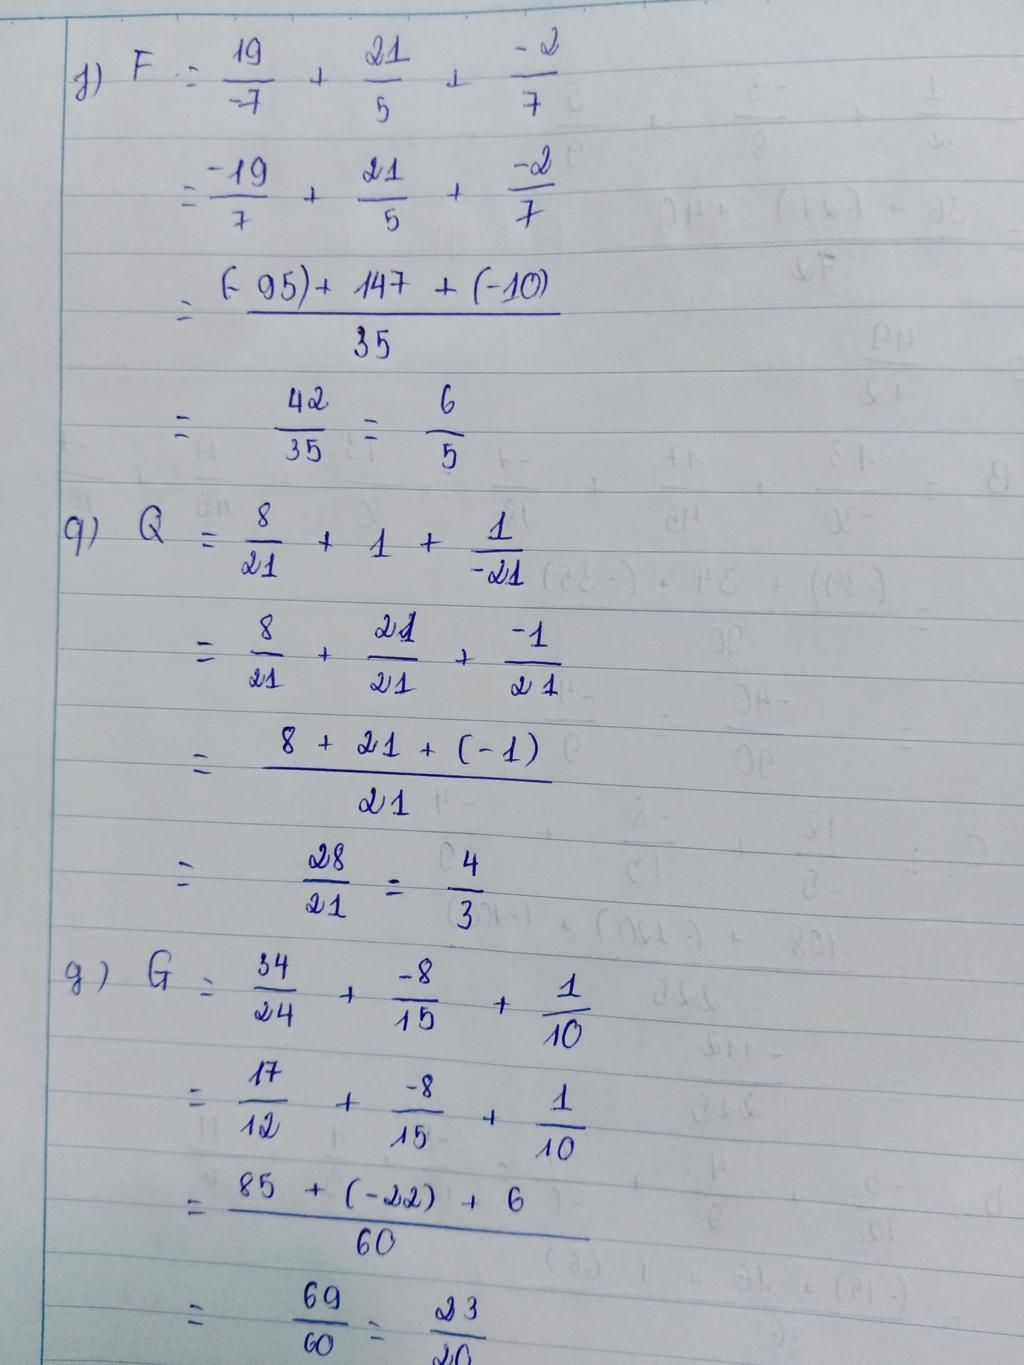 f) F = 19/-7 + 21/5 + -2/7
= -19/7 + 21/5 + -2/7
= (-95) + 147 + (-10) / 35
= 42/35 = 6/5
q) Q = 8/21 + 1 + 1/-21
= 8/21 + 21/21 + -1/21
= 8 + 21 + (-1) / 21
= 28/21 = 4/3
g) G = 34/24 + -8/15 + 1/10
= 17/12 + -8/15 + 1/10
= 85 + (-22) + 6 / 60
= 69/60 = 23/20